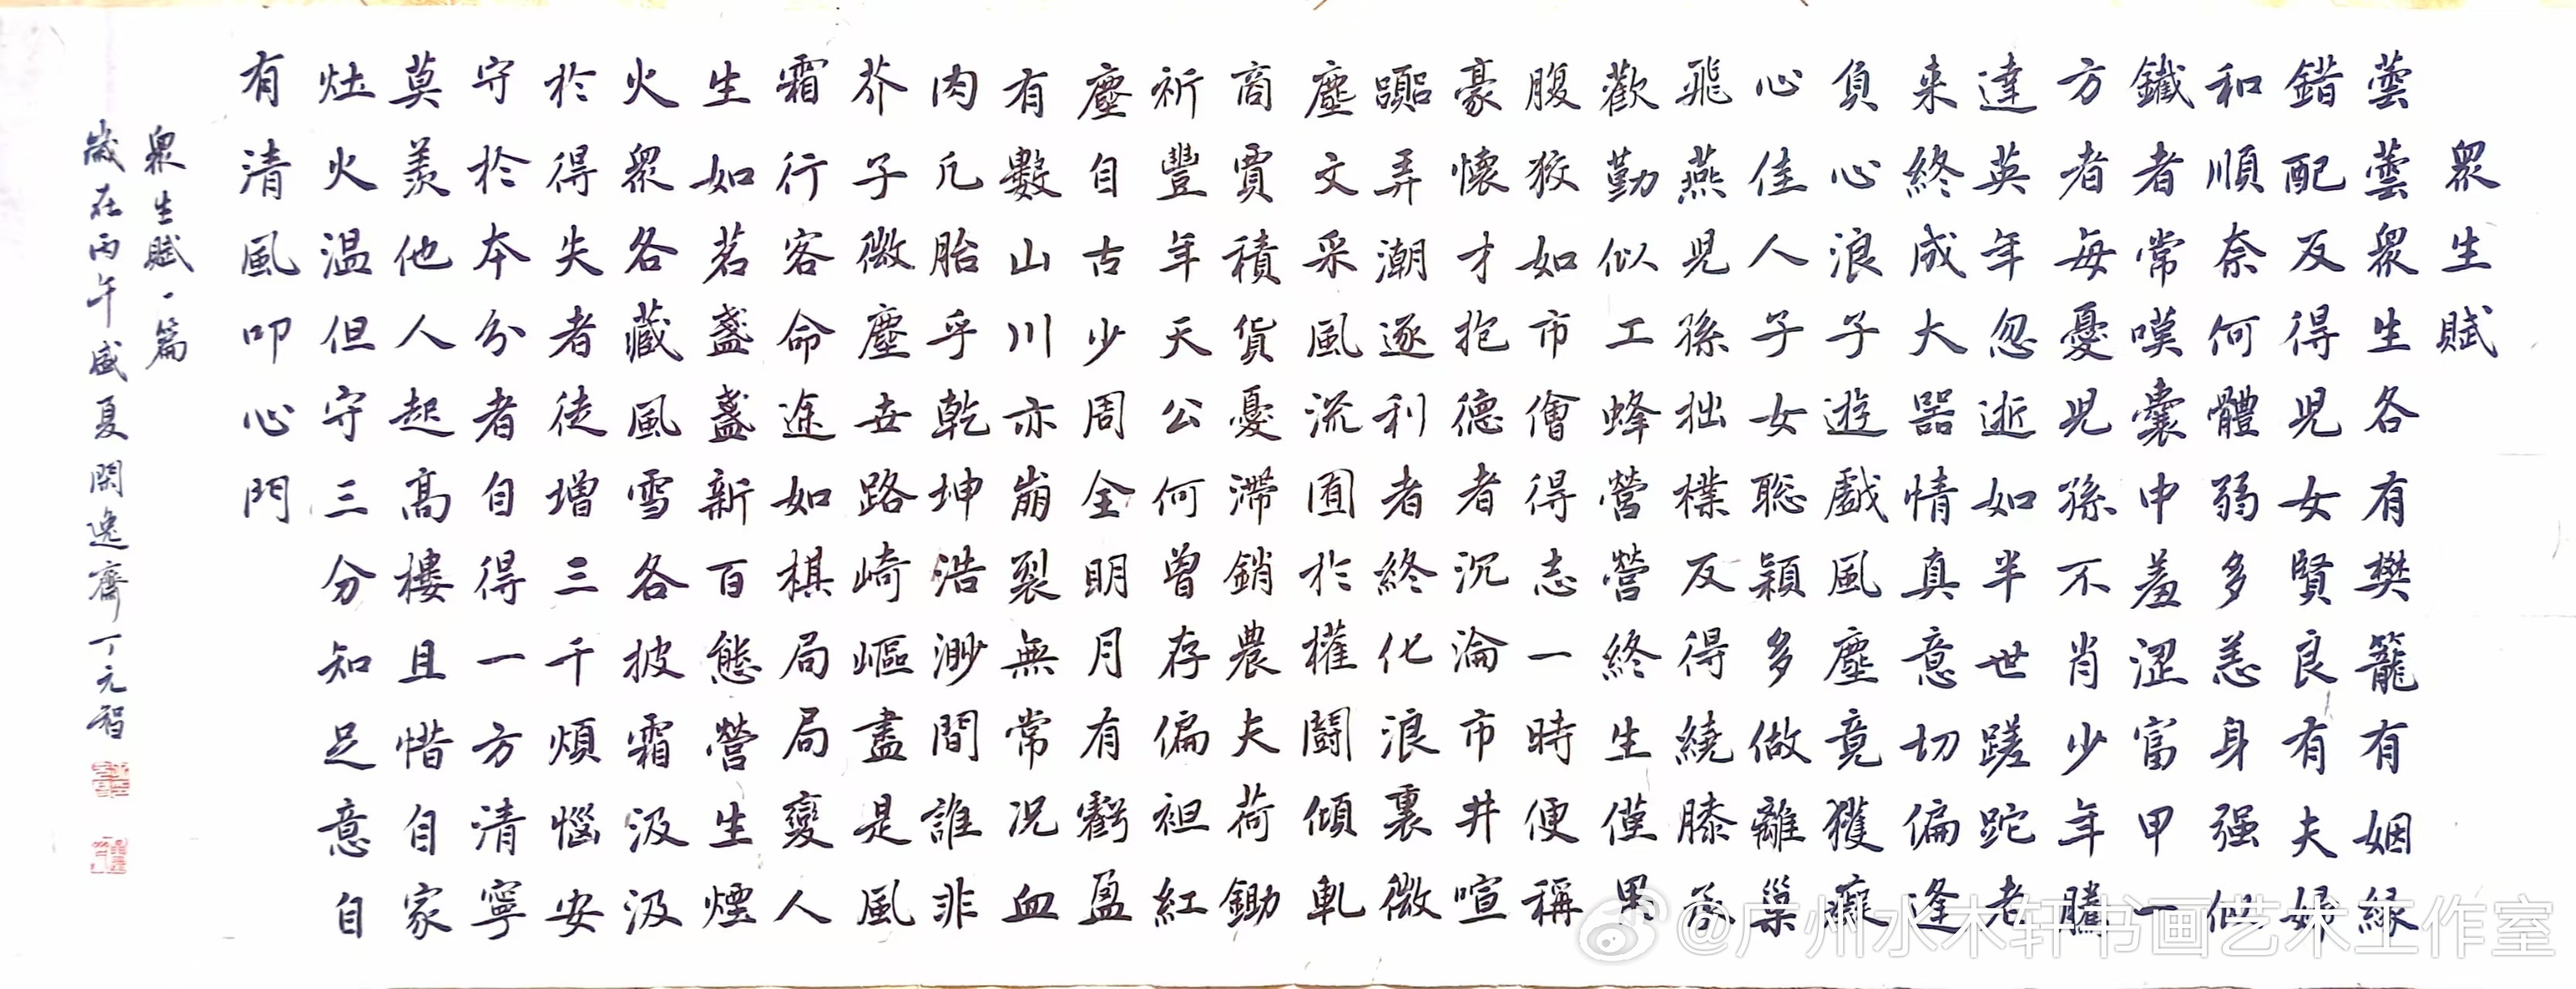 眾生賦
蕓蕓眾生各有樊籠有姻緣
錯配反得兒女賢良有夫婦
和順奈何體弱多恙身强似
鐵者常嘆囊中羞澀富甲一
方者每憂兒孫不肖少年騰
達英年忽逝如半世蹉跎老
来終成大器情真意切偏逢
負心浪子遊戲風塵竟獲癡
心佳人子女聪穎多做離巢
飛燕兒孫拙樸反得繞膝承
歡勤似工蜂營營終生僅果
腹狡如市儈得志一時便稱
豪懷才抱德者沉淪市井喧
囂弄潮逐利者終化浪裏微
塵文采風流囿於權鬪傾軋
商賈積貨憂滯銷農夫荷鋤
祈豐年天公何曾存偏袒紅
塵自古少周全明月有虧盈
有數山川亦崩裂無常况血
肉凡胎乎乾坤浩渺間誰非
芥子微塵世路崎嶇盡是風
霜行客命途如棋局局變人
生如茗盞盞新百態營生煙
火眾各藏風雪各披霜汲汲
於得失者徒增三千煩惱安
守於本分者自得一方清寧
莫羨他人起高樓且惜自家
灶火温但守三分知足意自
有清風叩心門
眾生賦一篇
歲在丙午盛夏閑逸齋丁元智
@广州水木轩书画艺术工作室